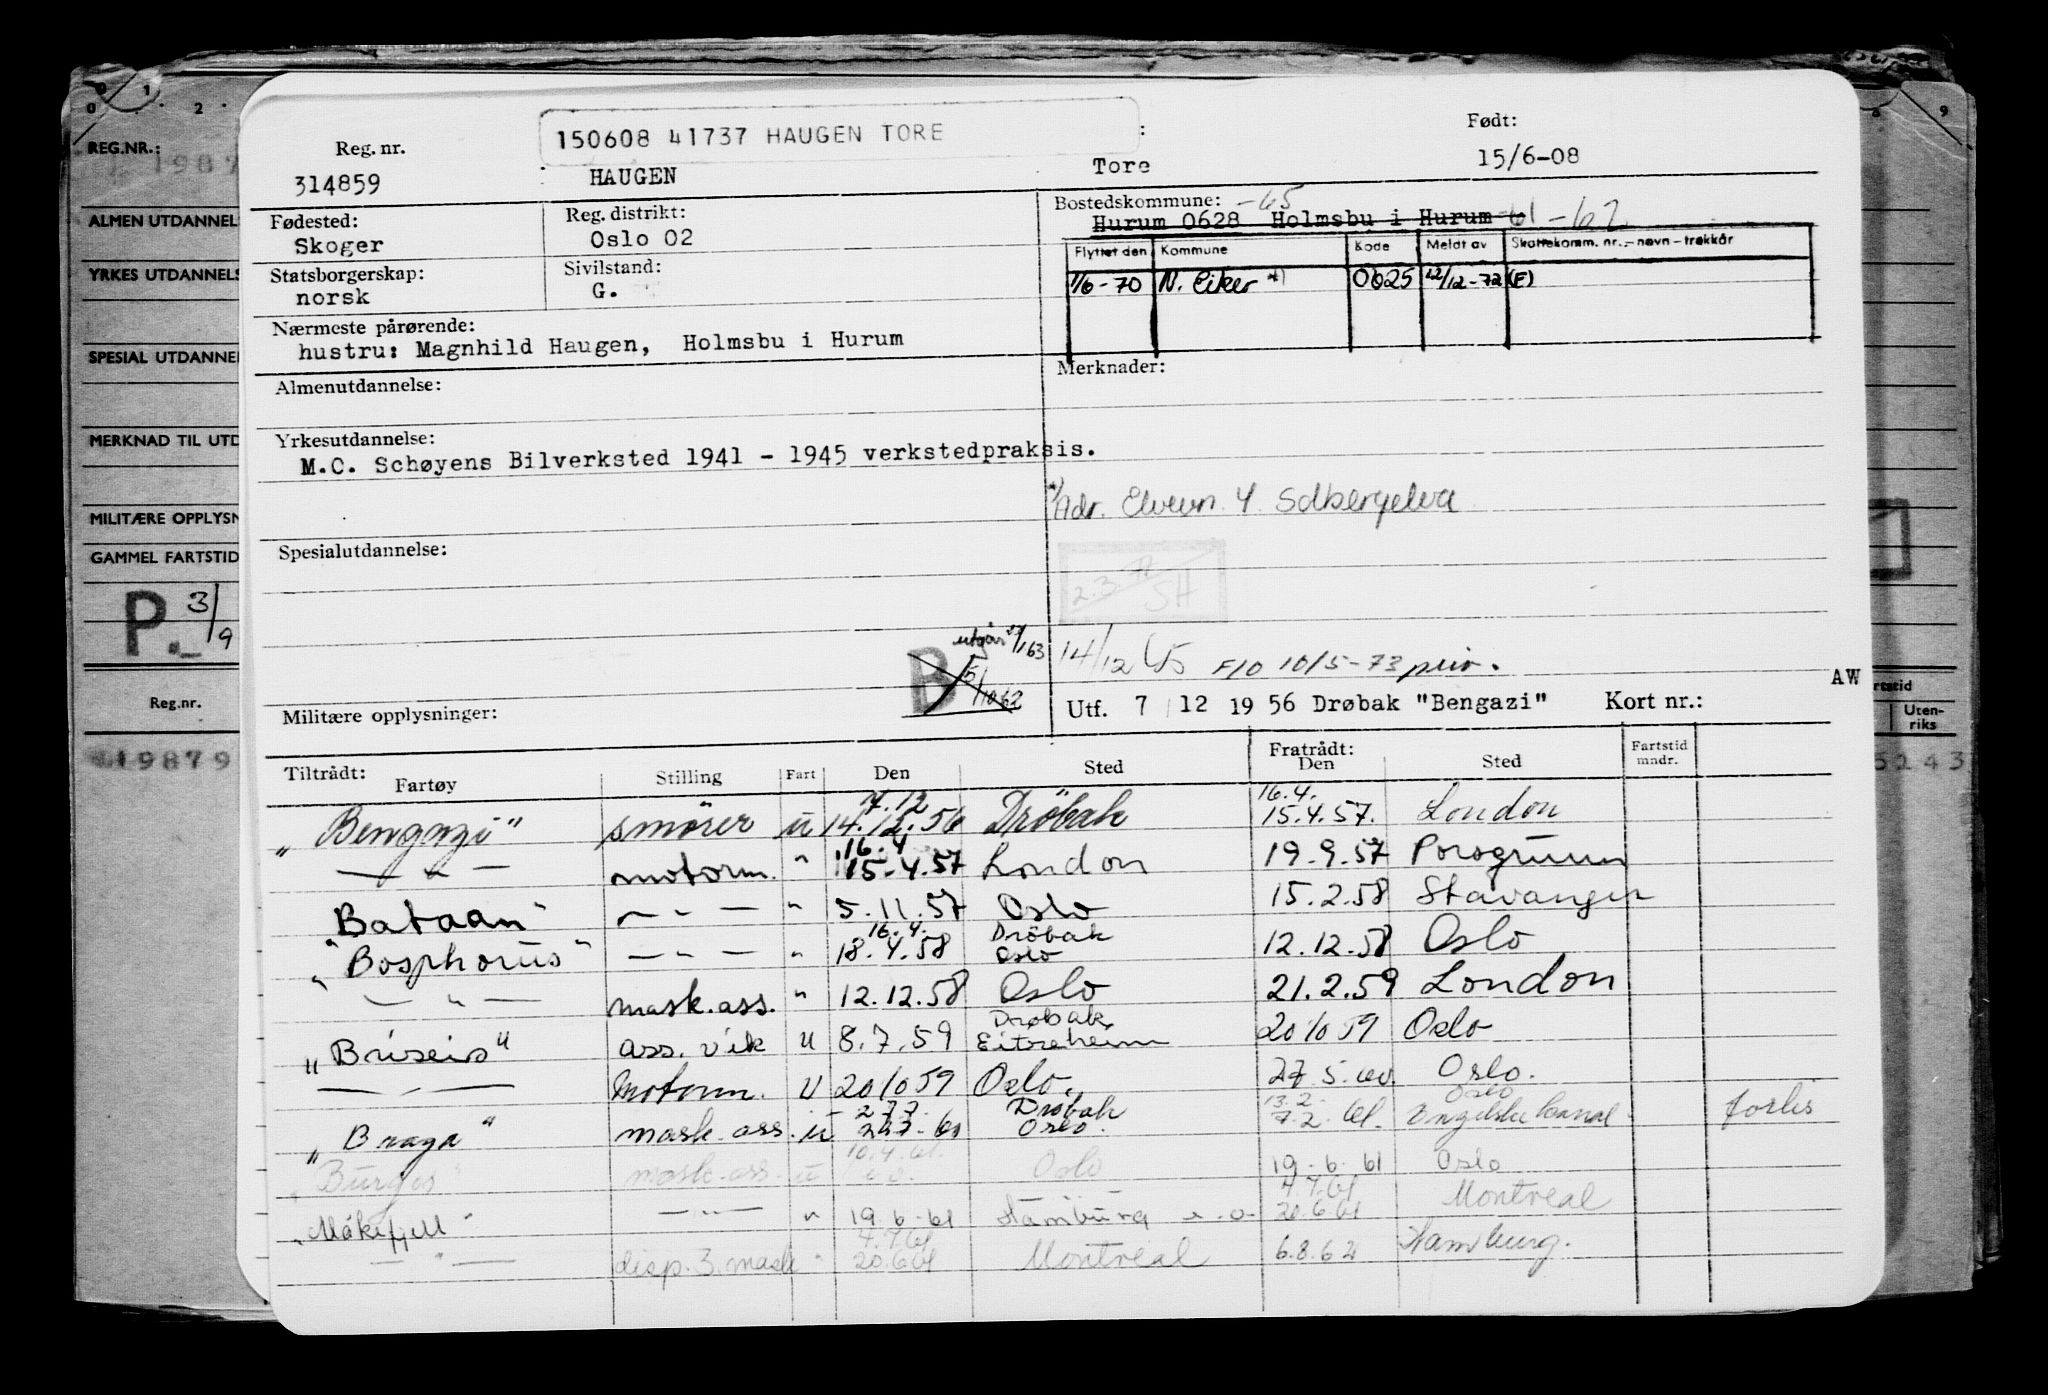 REG.NR.:
ALMEN UTDANNEL
YRKES UTDANNELS
SPESIAL UTDANNEL
MERKNAD TIL UTD
MILITÆRE OPPLYSN
GAMMEL FARTSTID
P. 3/9
Reg.nr.
419879
150608 41737 HAUGEN TORE
Reg. nr. 314859
HAUGEN Tore
Født: 15/6-08
Fødested: Skoger
Reg. distrikt: Oslo 02
Bostedskommune: -65
Hurum 0628 Holmsbu i Hurum -61 -62
Statsborgerskap: norsk
Sivilstand: G.
Flyttet den Kommune Kode Meldt av Skattekomm. nr. - navn - trekkår
1/6-70 N. Eiker *) 0625 12/12-72 (E)
Nærmeste pårørende:
hustru: Magnhild Haugen, Holmsbu i Hurum
Almenutdannelse:
Merknader:
Yrkesutdannelse:
M.C. Schøyens Bilverksted 1941 - 1945 verkstedpraksis.
*) Adr. Elvevn. 4 Solbergelva
Spesialutdannelse:
2.3.72 SH
utgår 63
B 5/10 62
14/12 65 F/O 10/5-73 priv.
AW
Militære opplysninger:
Utf. 7/12 1956 Drøbak "Bengazi" Kort nr.:
Tiltrådt: Fratrådt:
Fartøy Stilling Fart Den Sted Den Sted Fartstid mndr.
7.12 16.4.
"Bengazi" smører u 14.12.56 Drøbak 15.4.57. London
16.4
— " — motorm. " 15-4.57 London 19.9.57 Porsgrunn
"Bataan" — " — " 5.11.57 Oslo 15.2.58 Stavanger
16.4. Drøbak
"Bosphorus" — " — " 18.4.58 Oslo 12.12.58 Oslo
— " — mask.ass. " 12.12.58 Oslo 21.2.59 London
Drøbak
"Briseis" ass. vik u 8.7.59 Eitreheim 20/10 59 Oslo
— " — Motorm. u 20/10 59 Oslo. 27.5.60 Oslo.
27.7. Drøbak 13.2. Oslo
"Braga" mask.ass. u 28.7-60 Oslo. 7.2.61. Engelske kanal forlis
10.4.61.
"Burgos" mask.ass. u Oslo 19-6-61 Oslo
4.7.61
"Måkefjell" — " — " 19.6-61 Hamburg 20.6.61 Montreal
4.7.61
— " — disp.3.mask " 20.6.61 Montreal 6.8.62 Hamburg.
Uten-
riks
5243